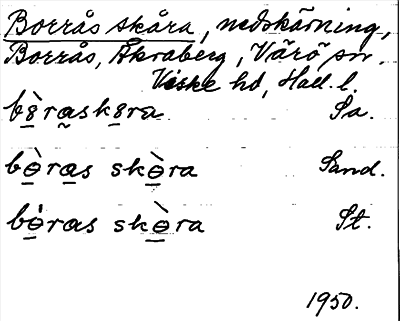 Borrås skåra, nedskärning,
Borrås, Åkraberg, Värö sn.
Viske hd, Hall. l.
bòraskɵra Sa.
bɵ̀ras skɵ̀ra Sand.
bɵ́ras skɵ̀ra St.
1950.